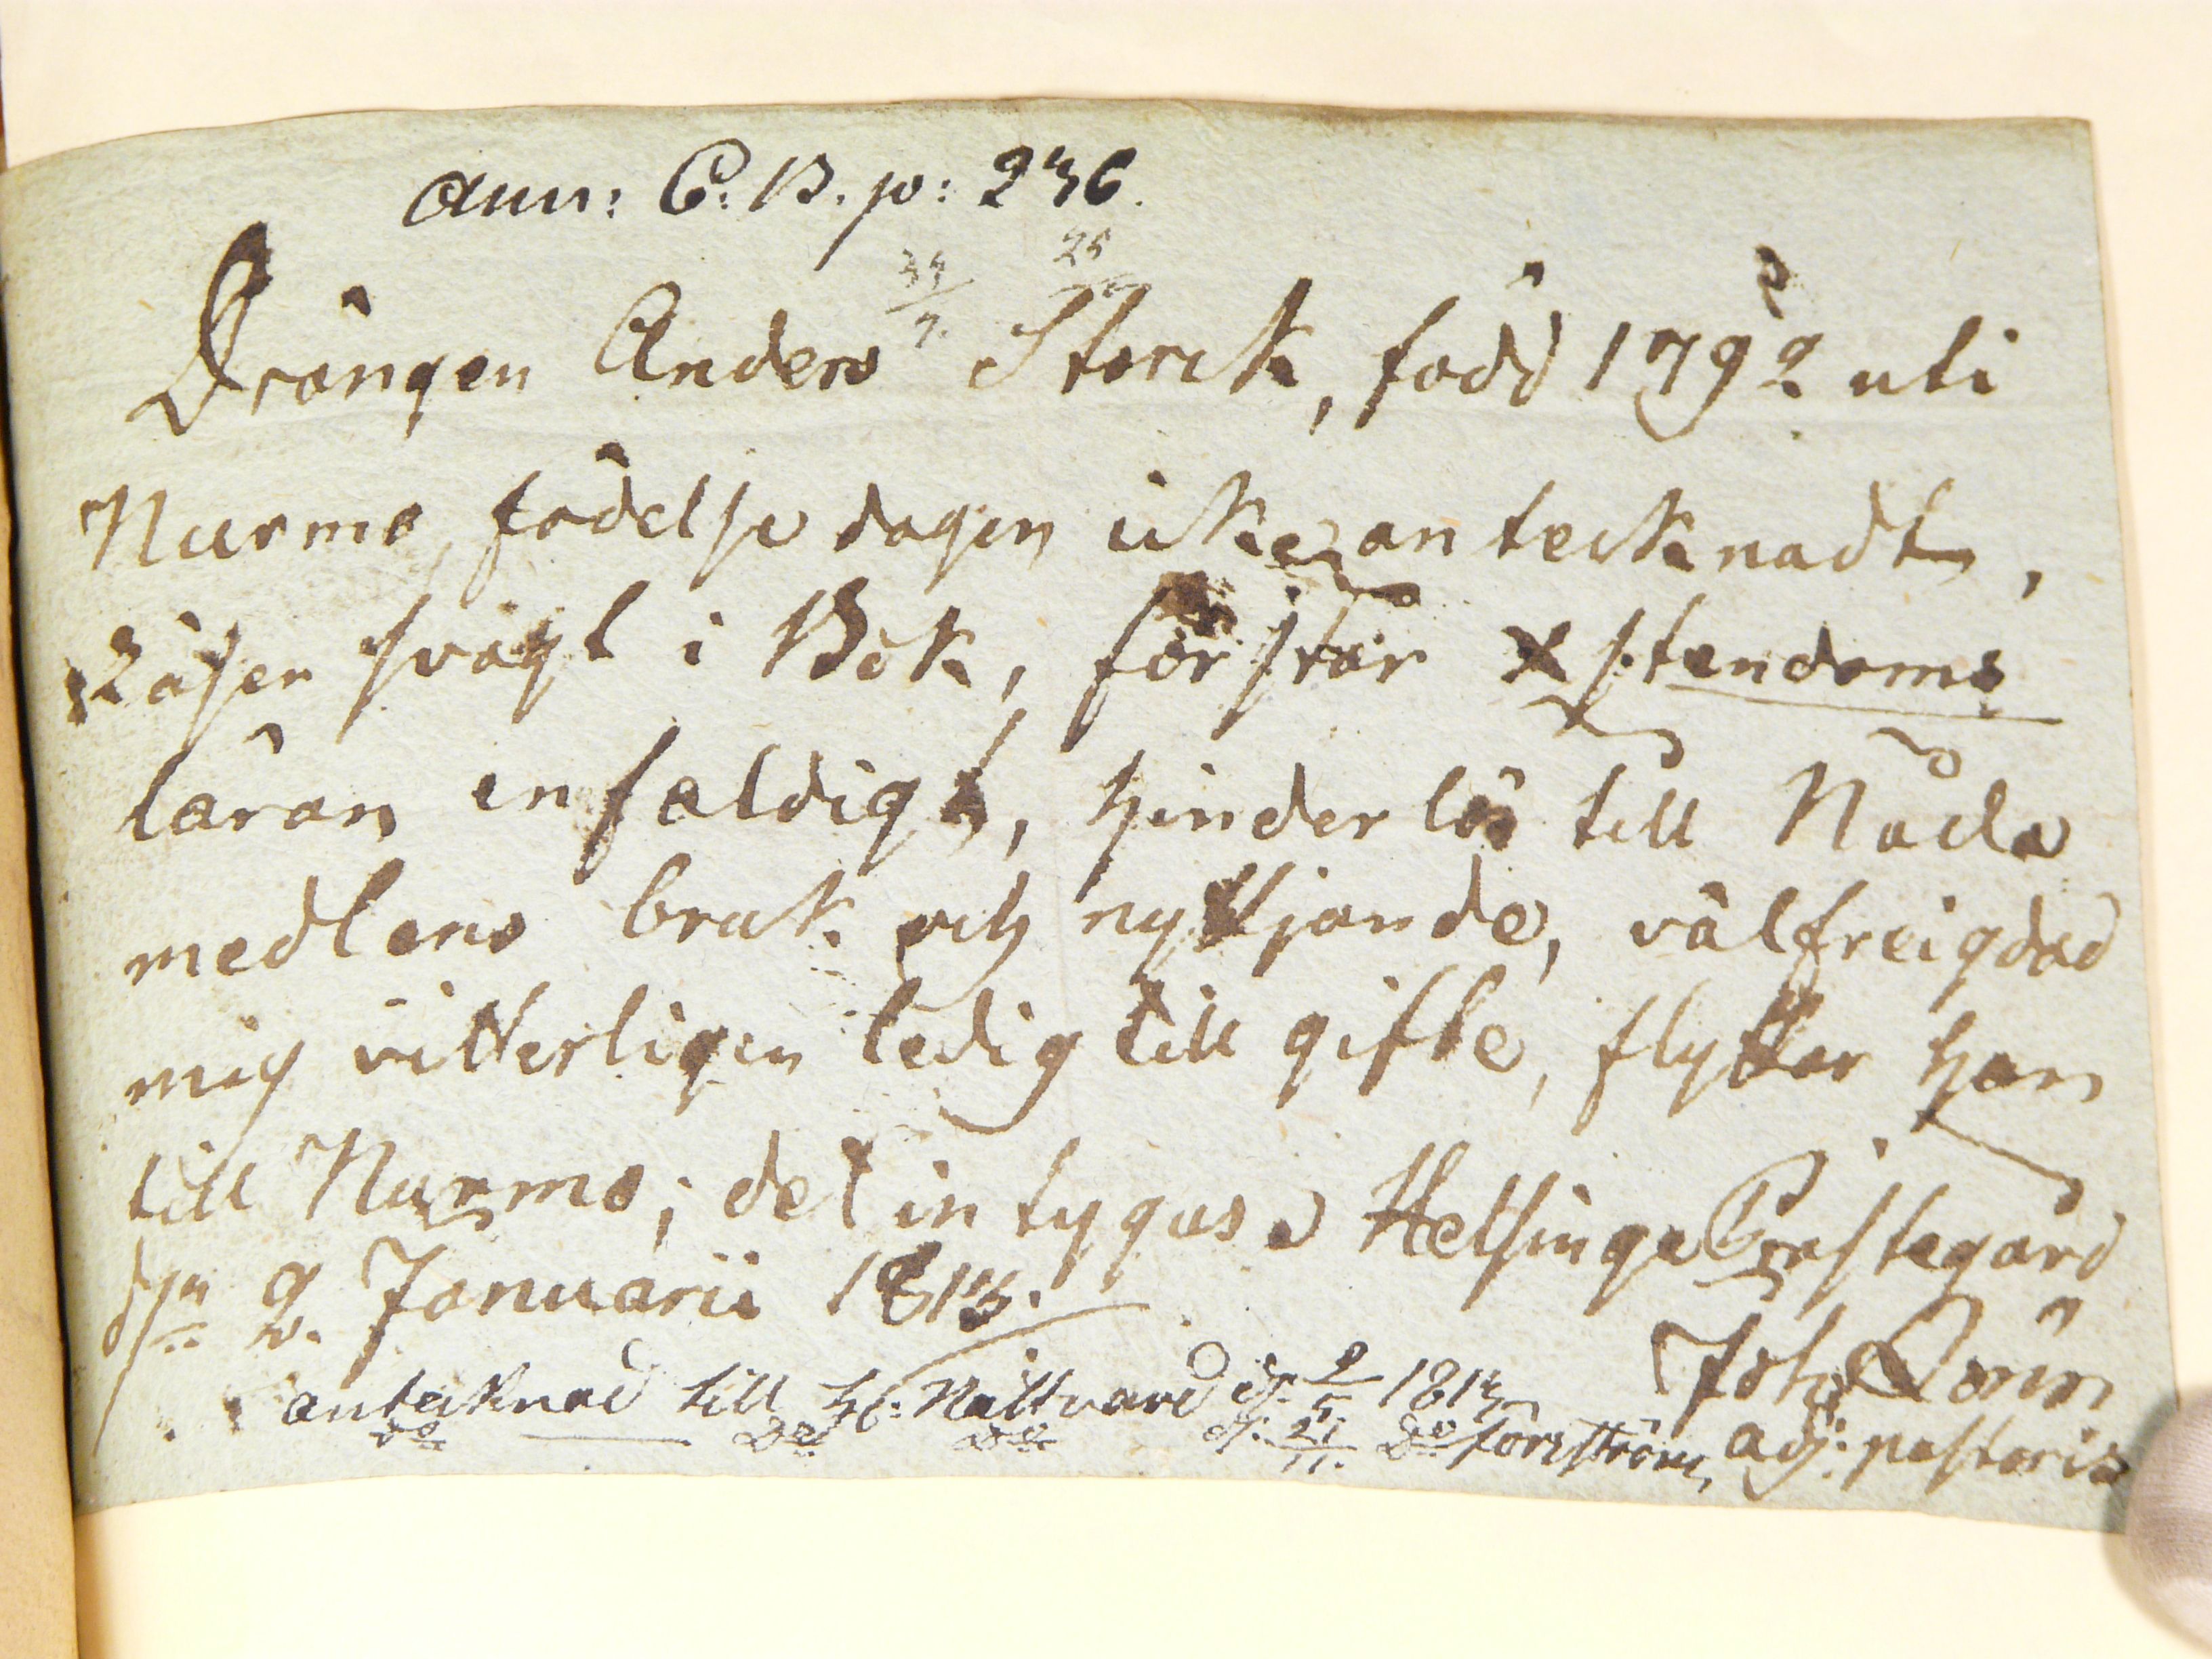 Ann: C. B. p: 236.
Drängen Anders Storck, född 1792 uti
Nurmo, födelse dagen icke antecknadt,
Läser svagt i Bok, förstår Xstendoms
läran enfaldigt, hinderlös till Nåde
medlens bruk och nyttjande, välfreigdad
mig vitterligen ledig till gifte, flyttar han
till Nurmo; det intygas. Helsinge Prestegård
dsn 2. Januarii 1813.
Joh.
antecknad till H: Nattvard d. 2/5 1813
do do do d. 21/11. do Forsström, adj: pastoris